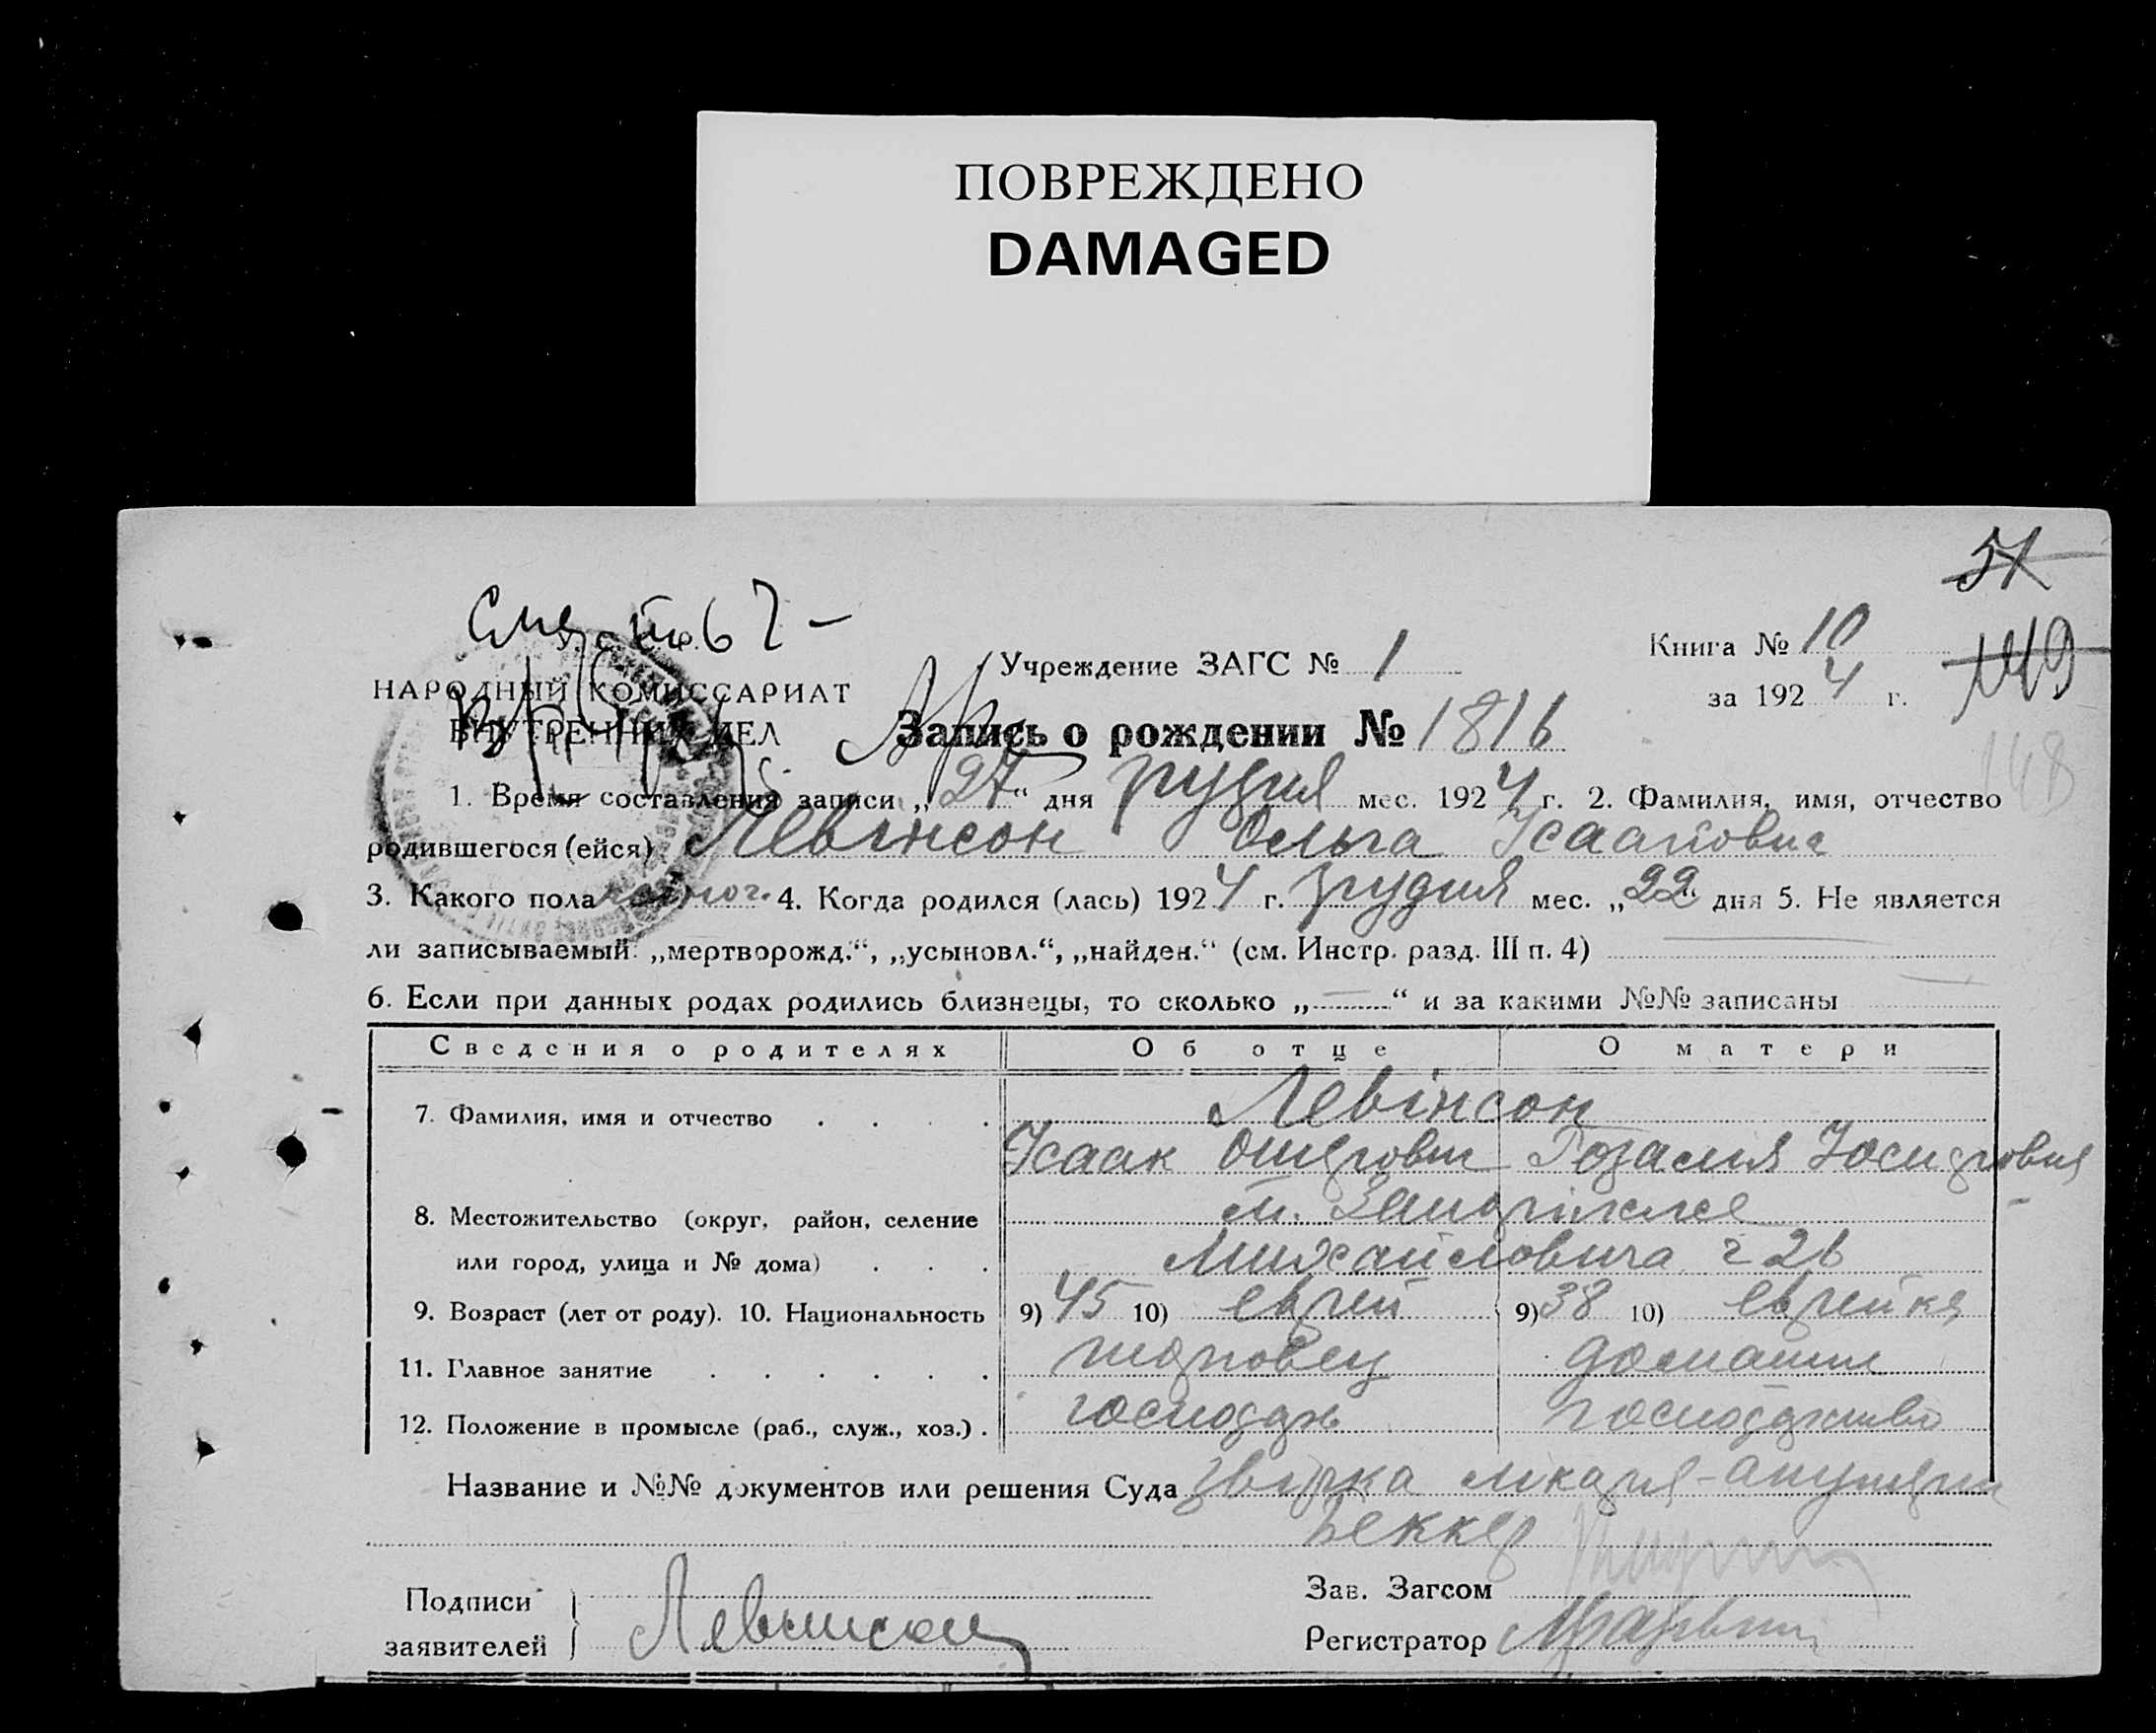 ПОВРЕЖДЕНО
DAMAGED
54
Книга № 10
149
Учреждение ЗАГС № 1
за 1924 г.
НАРОДНЫЙ КОМИССАРИАТ
ВНУТРЕННИХ ДЕЛ
Запись о рождении № 1816
148
1. Время составления записи „27“ дня грудня мес. 1924 г. 2. Фамилия, имя, отчество
родившегося (ейся) Левінсон Ольга Ісааковна
3. Какого пола жіноч. 4. Когда родился (лась) 1924 г. грудня мес. „22“ дня 5. Не является
ли записываемый: „мертворожд.“, „усыновл.“, „найден.“ (см. Инстр. разд. III п. 4)
6. Если при данных родах родились близнецы, то сколько „—“ и за какими №№ записаны
Сведения о родителях Об отце О матери
7. Фамилия, имя и отчество Левінсон
Ісаак Ошерович Розалия Иосифовна
8. Местожительство (округ, район, селение м. Запоріжжє
или город, улица и № дома) Михайловича 26
9. Возраст (лет от роду). 10. Национальность 9) 45 10) еврей 9) 38 10) еврейка
11. Главное занятие торговец домашнє
12. Положение в промысле (раб., служ., хоз.) господарь господарство
Название и №№ документов или решения Суда звірка лікаря-акушера
Беккер
Подписи
заявителей Левинсон
Зав. Загсом
Регистратор